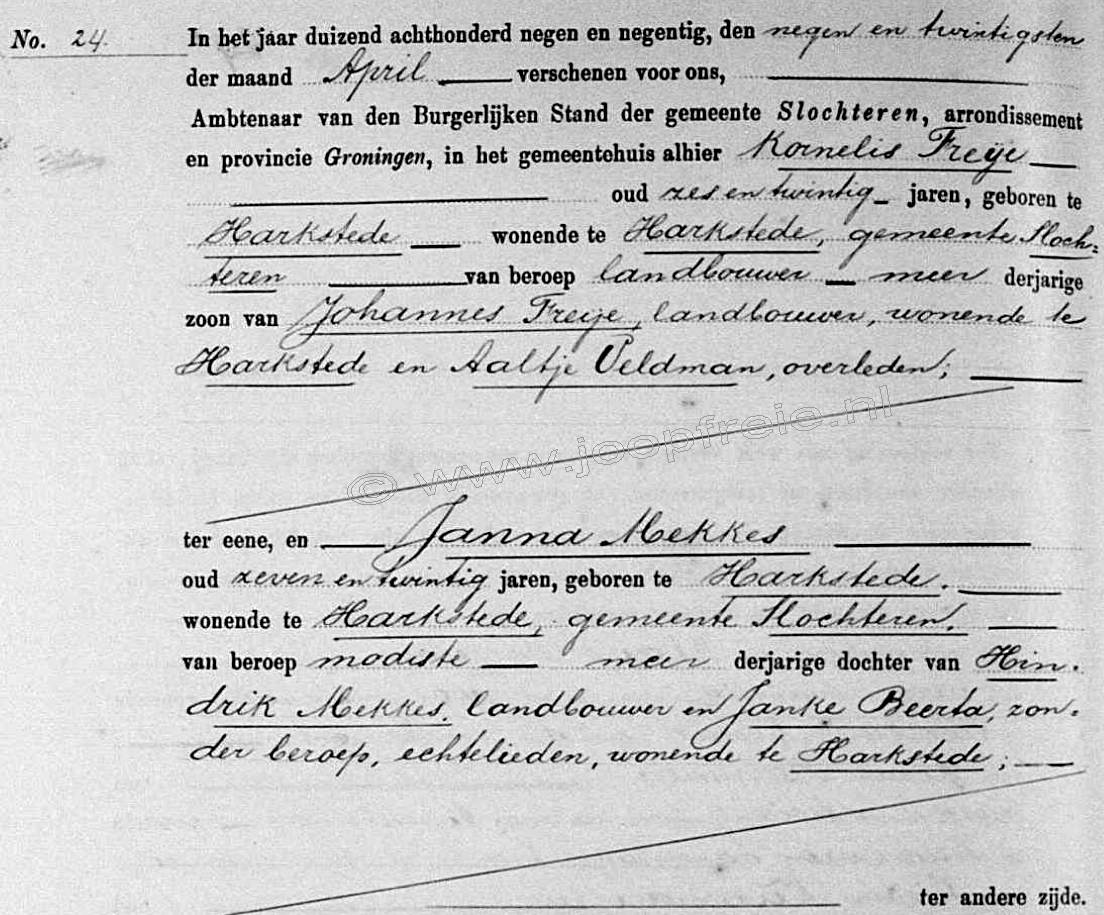 No. 24. In het jaar duizend achthonderd negen en negentig, den negen en twintigsten
der maand April verschenen voor ons,
Ambtenaar van den Burgerlijken Stand der gemeente Slochteren, arrondissement
en provincie Groningen, in het gemeentehuis alhier Kornelis Freije
oud zes en twintig jaren, geboren te
Harkstede wonende te Harkstede, gemeente Sloch-
teren van beroep landbouwer meer derjarige
zoon van Johannes Freije, landbouwer, wonende te
Harkstede en Aaltje Veldman, overleden;
© www.joopfreie.nl
ter eene, en Janna Mekkes
oud zeven en twintig jaren, geboren te Harkstede.
wonende te Harkstede, gemeente Slochteren.
van beroep modiste meer derjarige dochter van Hin-
drik Mekkes, landbouwer en Janke Beerta, zon-
der beroep, echtelieden, wonende te Harkstede;
ter andere zijde.